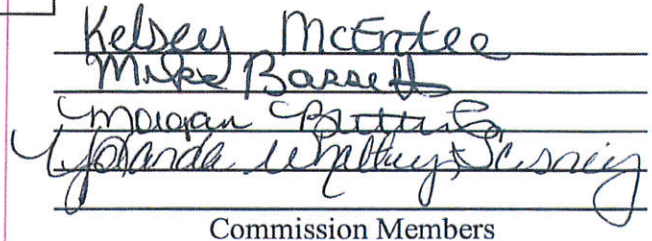 Kelsey McEntee
Mike Bassett
Morgan
Yolanda
Commission Members